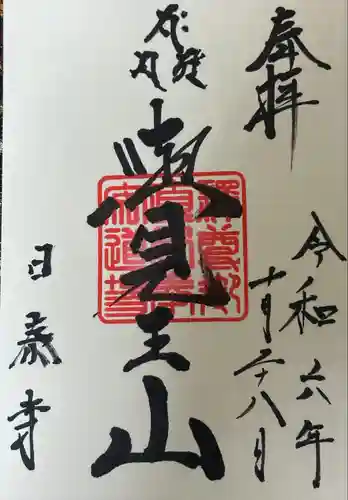 奉拝
令和六年
十月二十八日
覺王山
釋尊御
日泰寺